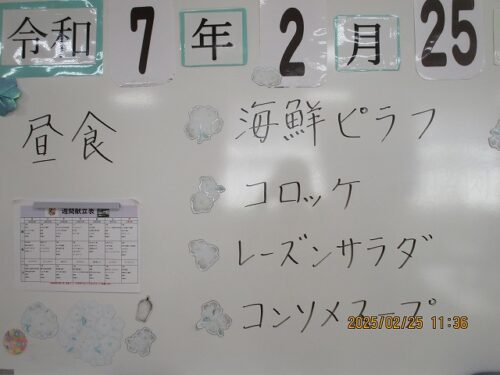 令和 7 年 2 月 25
昼食
海鮮ピラフ
コロッケ
レーズンサラダ
コンソメスープ
週間献立表
2025/02/25 11:36